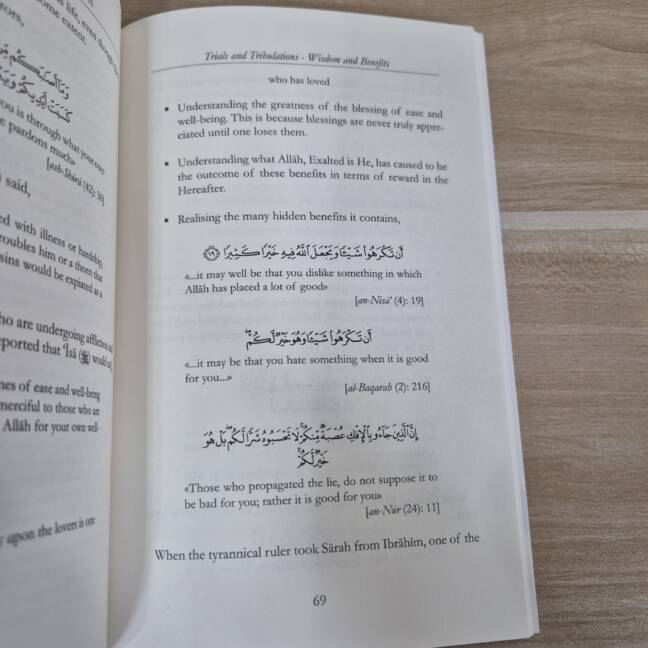 life, even though
some extent.
rors,
وَمَا أَصَٰبَكُم مِّن
كَسَبَتْ أَيْدِيكُمْ وَيَع
ou is through what your own
e pardons much»
[ash-Shūrā (42): 30]
said,
ed with illness or hardship,
roubles him or a thorn that
sins would be expiated as a
ho are undergoing affliction and
eported that ʿĪsā (
) would say
nes of ease and well-being
merciful to those who are
Allāh for your own well-
y upon the lovers is one
Trials and Tribulations - Wisdom and Benefits
who has loved
▪ Understanding the greatness of the blessing of ease and
well-being. This is because blessings are never truly appre-
ciated until one loses them.
▪ Understanding what Allāh, Exalted is He, has caused to be
the outcome of these benefits in terms of reward in the
Hereafter.
▪ Realising the many hidden benefits it contains,
أَن تَكْرَهُوا۟ شَيْـًٔا وَيَجْعَلَ ٱللَّهُ فِيهِ خَيْرًا كَثِيرًا ﴿١٩﴾
«...it may well be that you dislike something in which
Allāh has placed a lot of good»
[an-Nisāʾ (4): 19]
أَن تَكْرَهُوا۟ شَيْـًٔا وَهُوَ خَيْرٌ لَّكُمْ ۖ
«...it may be that you hate something when it is good
for you...»
[al-Baqarah (2): 216]
إِنَّ ٱلَّذِينَ جَآءُو بِٱلْإِفْكِ عُصْبَةٌ مِّنكُمْ ۚ لَا تَحْسَبُوهُ شَرًّا لَّكُم ۖ بَلْ هُوَ
خَيْرٌ لَّكُمْ ۚ
«Those who propagated the lie, do not suppose it to
be bad for you; rather it is good for you»
[an-Nūr (24): 11]
When the tyrannical ruler took Sārah from Ibrāhīm, one of the
69